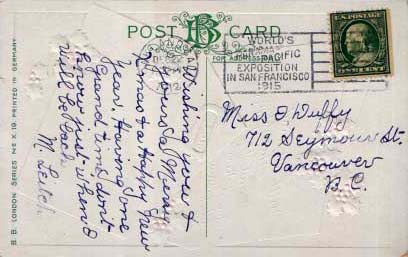 POST CARD
B
FOR ADDRESS
WORLD'S
PACIFIC
EXPOSITION
IN SAN FRANCISCO
1915
ONE CENT
Wishing you &
yours a Merry
Xmas & a Happy New
Year. Having one
Grand time, don't
know just when I
will be back
M. Leitch
Miss I Duffy
712 Seymour St.
Vancouver
B.C.
B. B. LONDON. SERIES No X 19. PRINTED IN GERMANY.